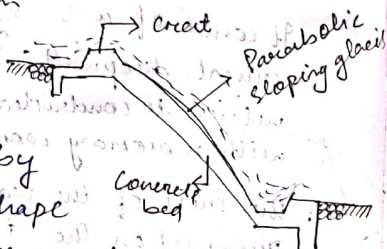 Crest
Parabolic
sloping glacis
by
Concrete
bed
hape